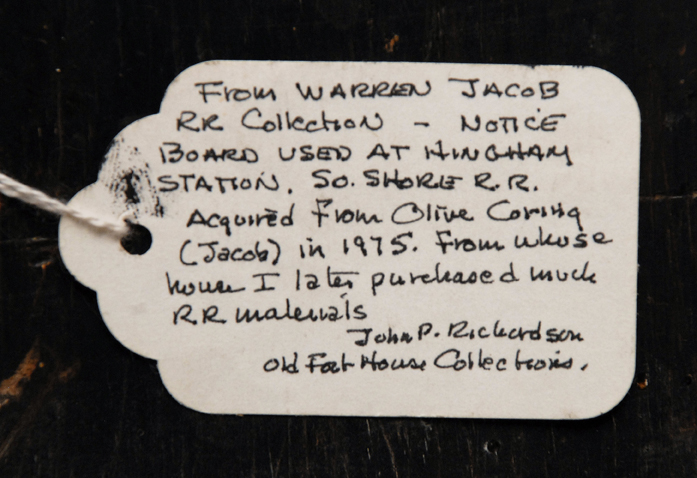 From WARREN JACOB
RR Collection - NOTICE
BOARD USED AT HINGHAM
STATION, SO. SHORE R.R.
Acquired From Olive Corinq
(Jacob) in 1975. From whose
house I later purchased much
RR materials
John P. Richardson
Old Fort House Collections.